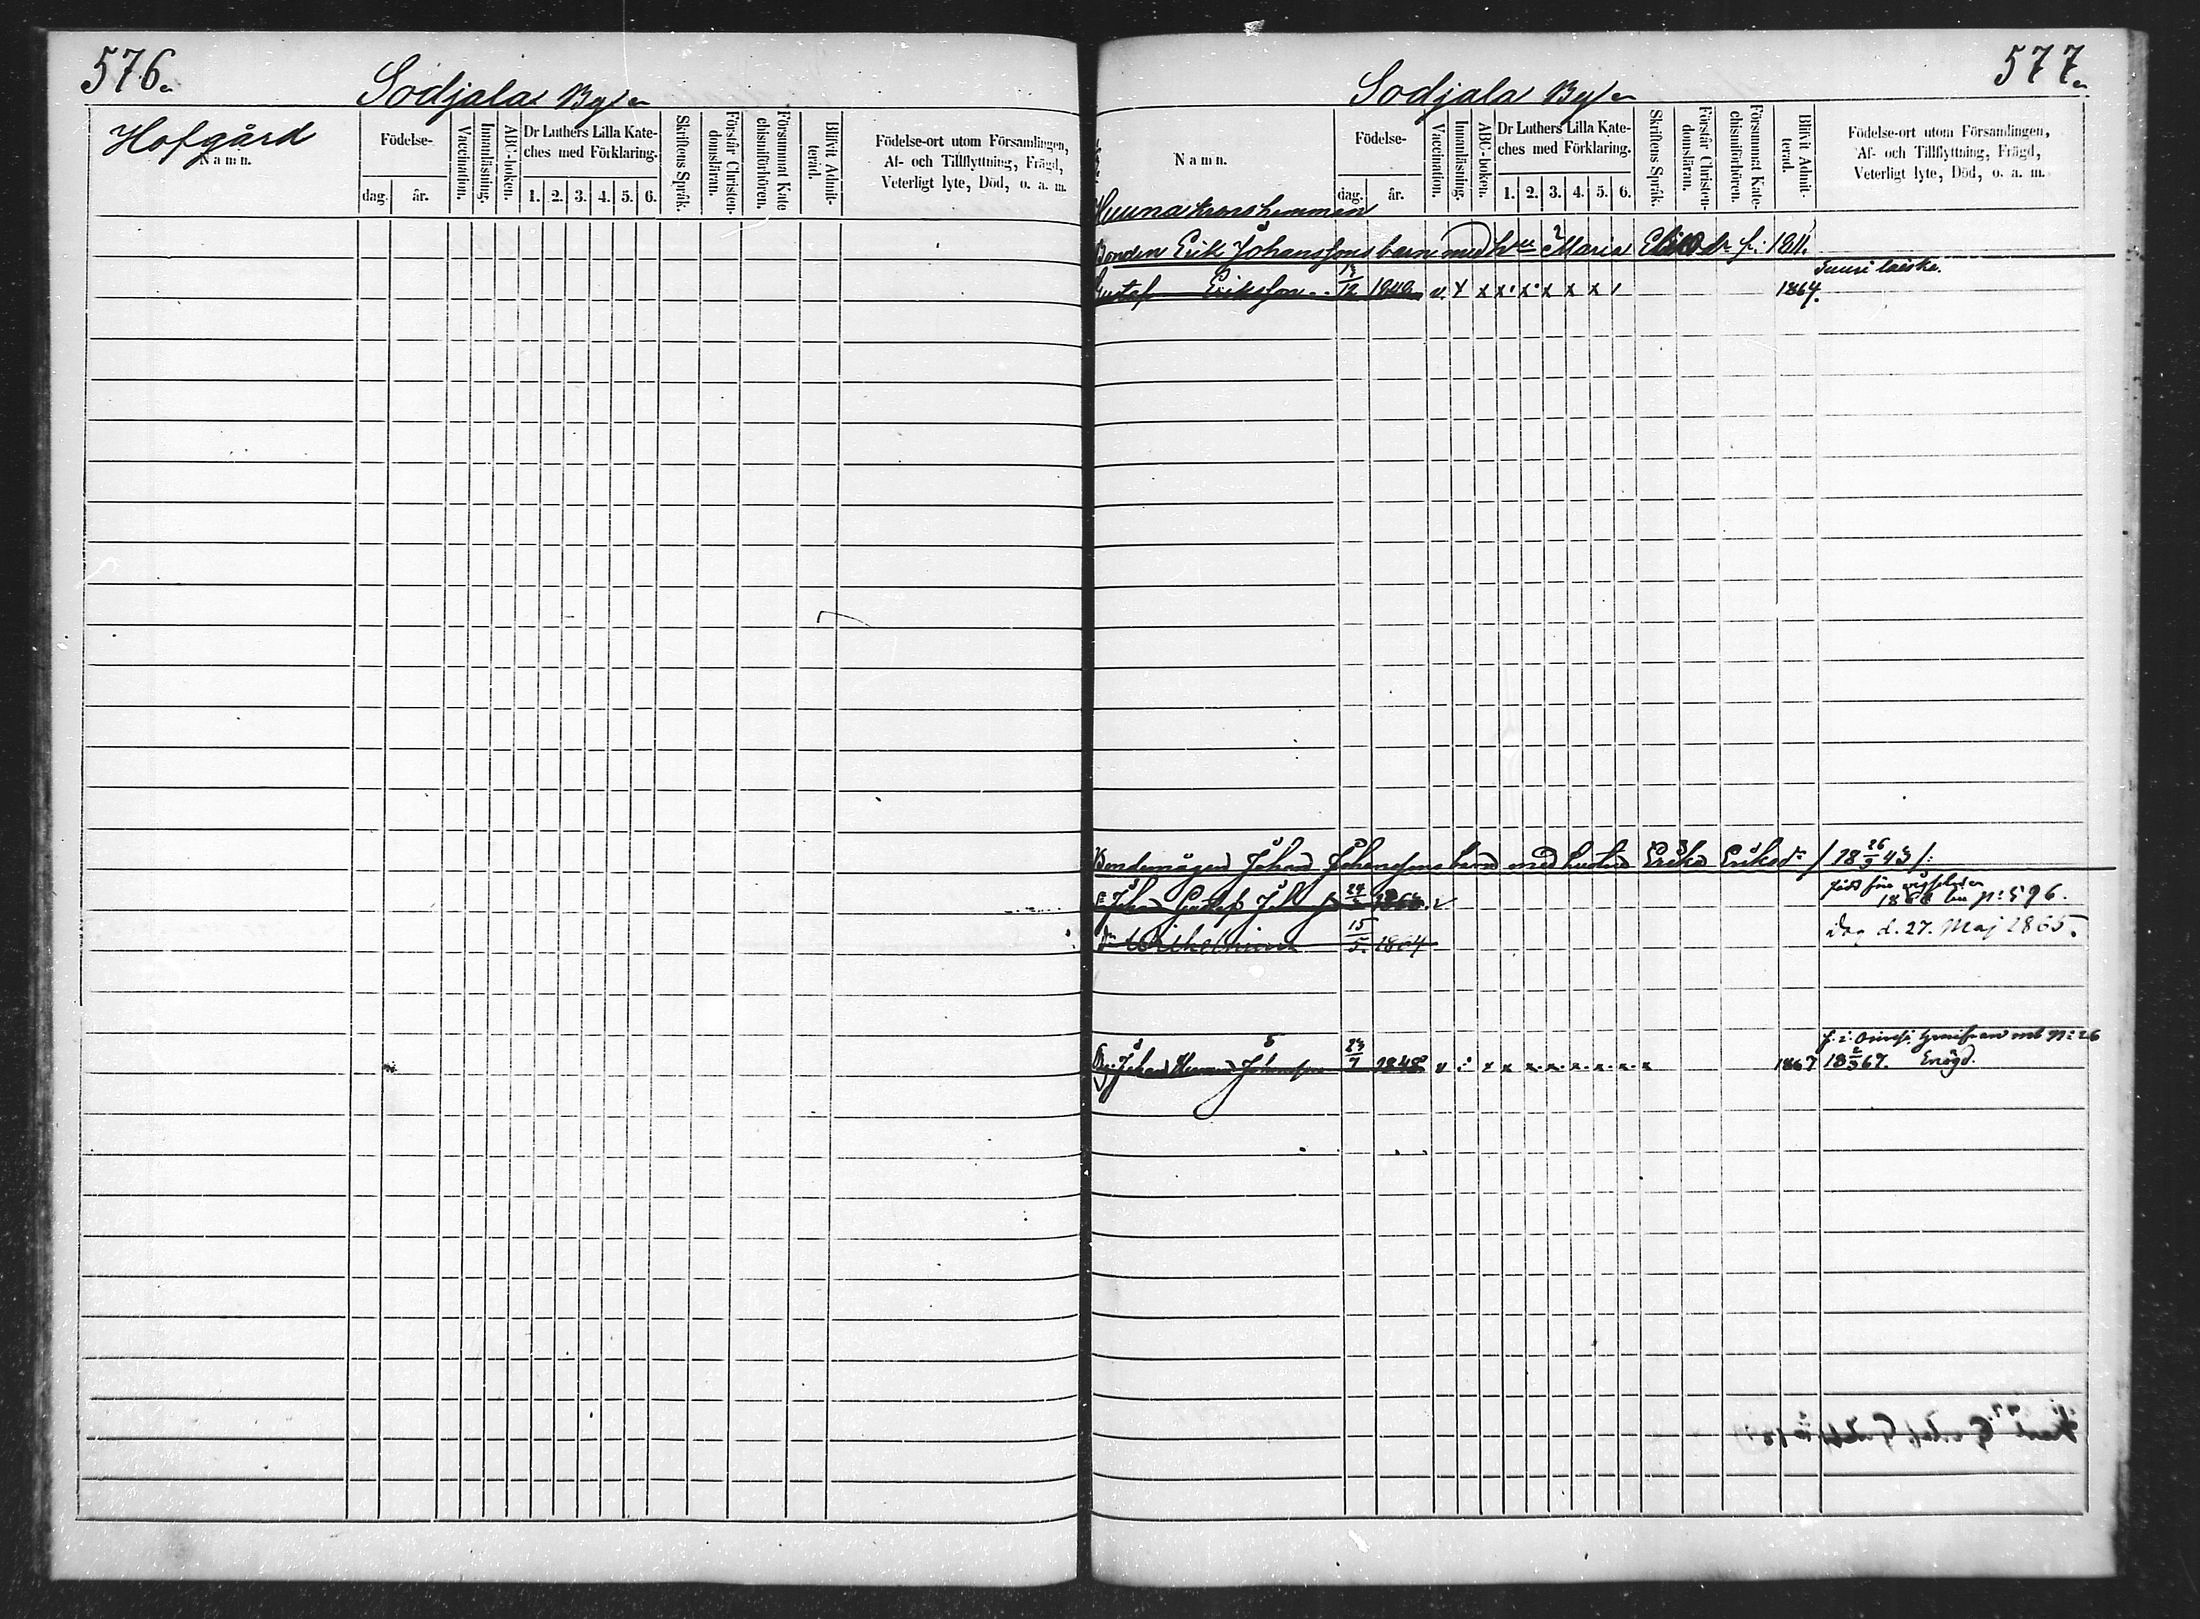 576.
Sodjala By
Hofgård
Namn.
Födelse-
dag.
år.
Vaccination.
Innanläsning.
ABC-boken.
Dr Luthers Lilla Kate-
ches med Förklaring.
1. 2. 3. 4. 5. 6.
Skriftens Språk.
Förstår Christen-
domsläran.
Försummat Kate
chismiförhören.
Blifvit Admit-
terad.
Födelse-ort utom Församlingen,
Af- och Tillflyttning, Frägd,
Veterligt lyte, Död, o. a. m.
577.
Sodjala By
Namn.
Födelse-
dag.
år.
Vaccination.
Innanläsning.
ABC-boken.
Dr Luthers Lilla Kate-
ches med Förklaring.
1. 2. 3. 4. 5. 6.
Skriftens Språk.
Förstår Christen-
domsläran.
Försummat Kate-
chismiförhören.
Blifvit Admit-
terad.
Födelse-ort utom Församlingen,
Af- och Tillflyttning, Frägd,
Veterligt lyte, Död, o. a. m.
Bonden Erik Johanssons barn med Maria
Gustaf Eriksson 12 v x x x x x x x 1864.
Johan Johanssons barn med hustru Erika Eriksdr /18 26/3 43/:
Johan Gustaf 24 v
N:o 596.
Wilhelmina 15/5. 1864
Dog d. 27. Maj 1865.
N:o 26
Johan Johansson 1848 v x x x x x x x x 1867 18 2/3 67. Enögd.